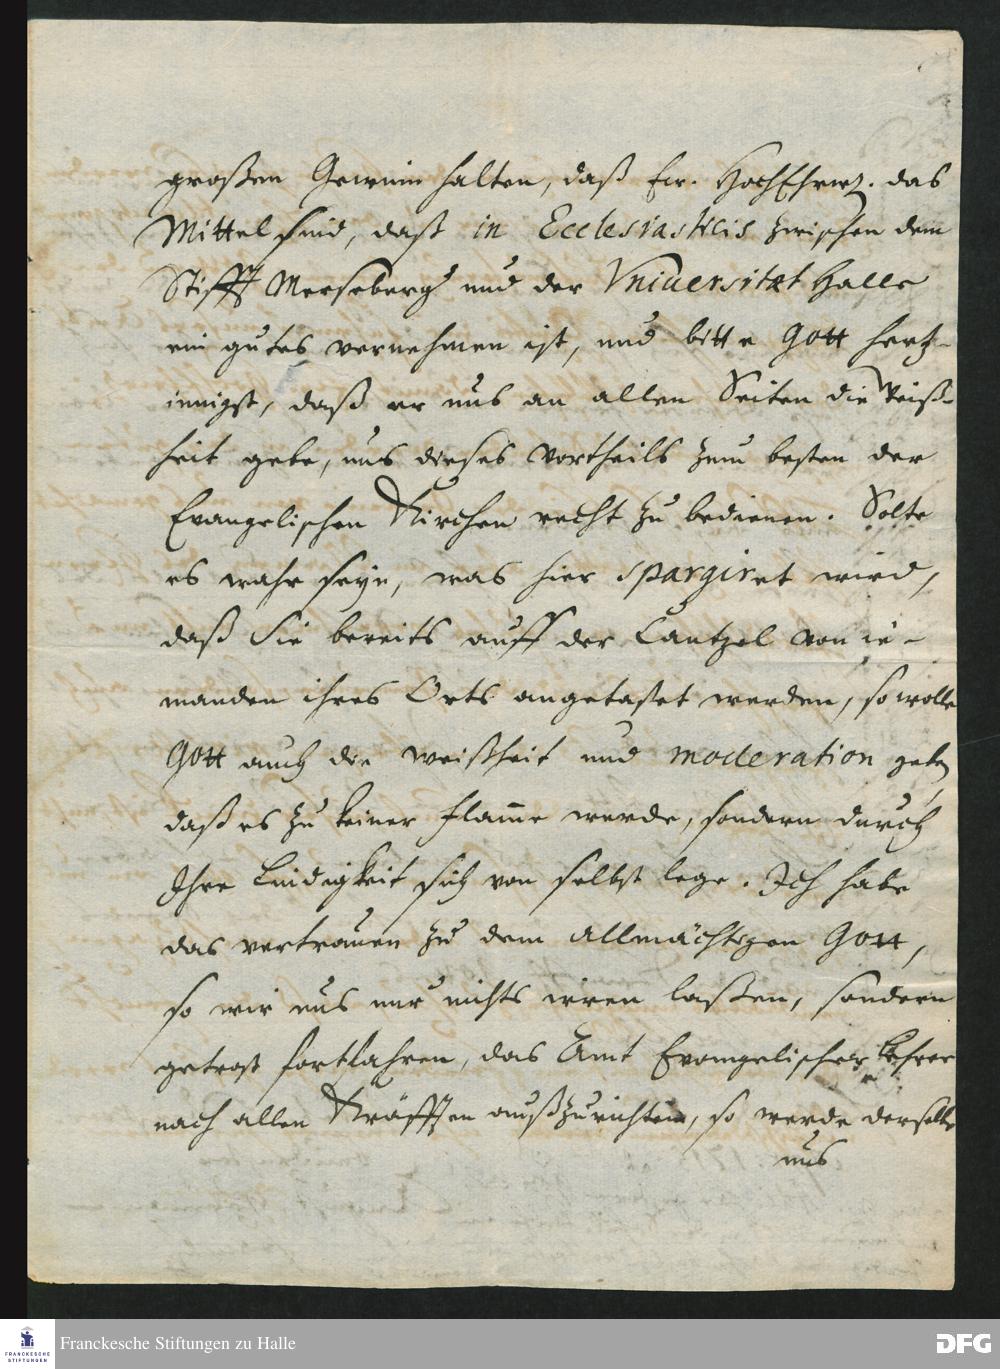 großen Gewinn halten, daß Ew. HochEhrw. das
Mittel sind, daß in Ecclesiasticis zwischen dem
Stifft Merseberg und der Vniuersitæt Halle
ein gutes vernehmen ist, und bitte Gott hertz-
innigst, daß er uns an allen Seiten die Weiß-
heit gebe, uns dieses Vortheils zum besten der
Evangelischen Kirchen recht zu bedienen. Solte
es wahr seyn, was hier spargiret wird,
daß Sie bereits auff der Cantzel von ie-
manden ihres Orts angetastet werden, so wolle
Gott auch die weißheit und moderation geben
daß es zu keiner flam̄e werde, sondern durch
Ihre Lindigkeit sich von selbst lege. Ich habe
das vertrauen zu dem allmächtigen Gott,
so wir uns nur nichts irren laßen, sondern
getrost fortfahren, das Amt Evangelischer Lehrer
nach allen Kräfften außzurichten, so werde derselbe
uns
Franckesche Stiftungen zu Halle
FRANCKESCHE STIFTUNGEN
DFG